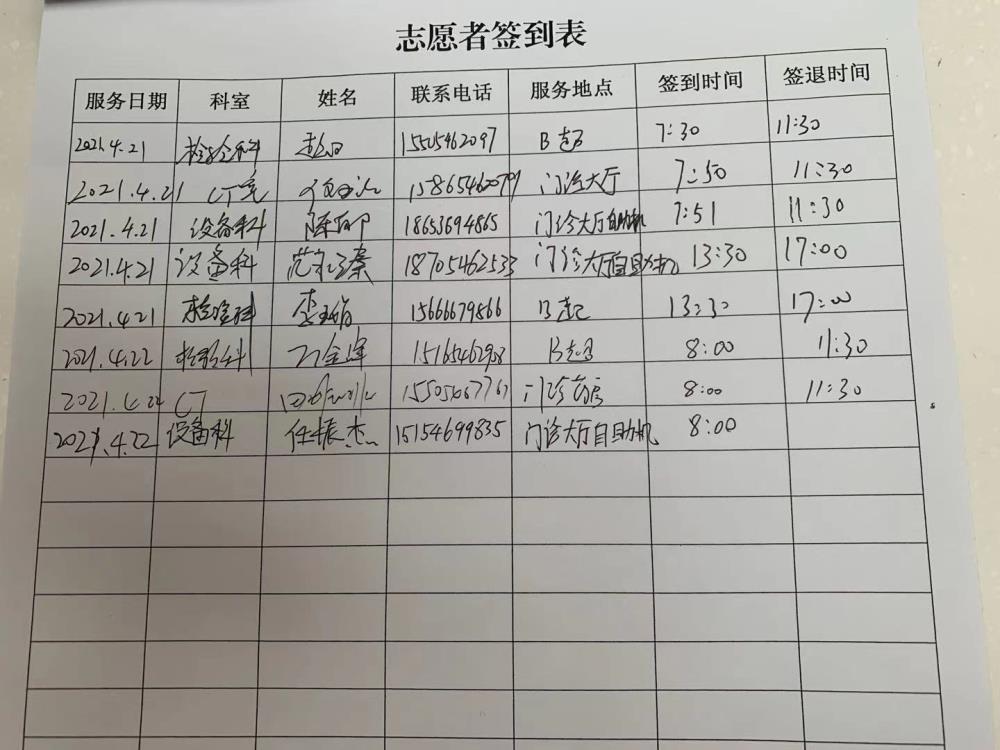 志愿者签到表
服务日期 科室 姓名 联系电话 服务地点 签到时间 签退时间
2021.4.21 检验科 15505462097 B超 7:30 11:30
2021.4.21 CT室 门诊大厅 7:50 11:30
2021.4.21 设备科 18653694865 门诊大厅自助机 7:51 11:30
2021.4.21 设备科 18705462533 门诊大厅自助机 13:30 17:00
2021.4.21 检验科 15666679866 B超 13:30 17:00
2021.4.22 检验科 B超 8:00 11:30
CT 门诊药房 8:00 11:30
2021.4.22 设备科 任振杰 15154699835 门诊大厅自助机 8:00